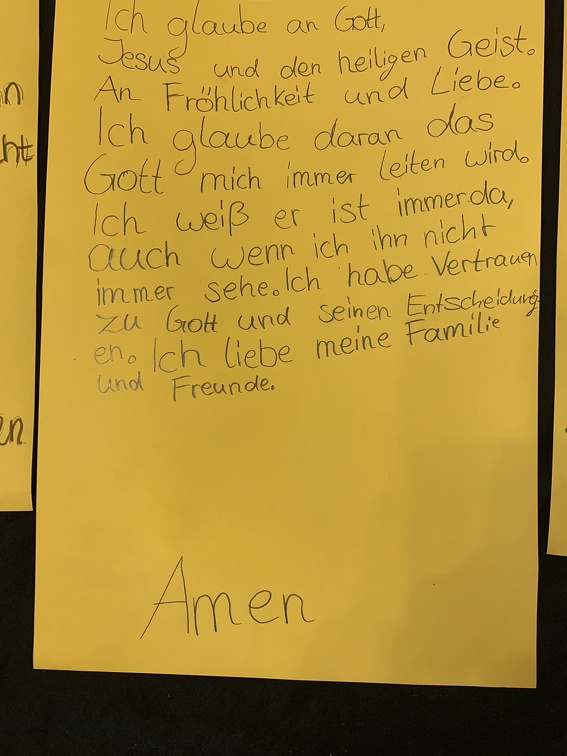 Ich glaube an Gott,
Jesus und den heiligen Geist.
An Fröhlichkeit und Liebe.
Ich glaube daran das
Gott mich immer leiten wird.
Ich weiß er ist immer da,
auch wenn ich ihn nicht
immer sehe. Ich habe Vertrauen
zu Gott und seinen Entscheidung
en. Ich liebe meine Familie
und Freunde.
Amen